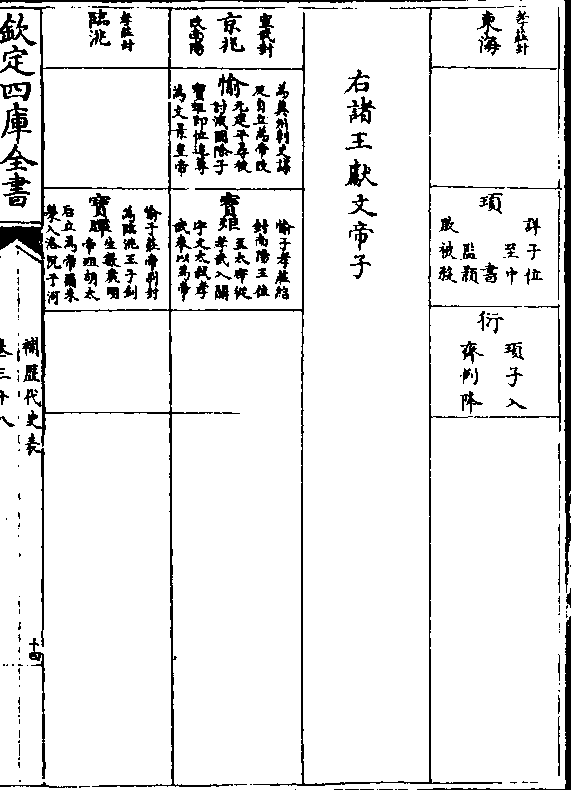 東海
孝莊封
頊
詳子位
至中
書
監顥
敗被殺
衍
頊子入
齊例降
右諸王獻文帝子
宣武封
京兆
改南陽
愉
為冀州刺史謀
反自立為帝改
元建平尋被
討滅國除子
寶炬即位追尊
為文景皇帝
寶矩
愉子孝莊紹
封南陽王位
至太宰從
孝武入關
宇文太弒孝
武奉以為帝
孝莊封
臨洮
寶暉
愉子莊帝別封
為臨洮王子釗
生數歲明
帝殂胡太
后立為帝爾朱
榮入洛沉于河
欽定四庫全書
補歷代史表
卷三十八
十四